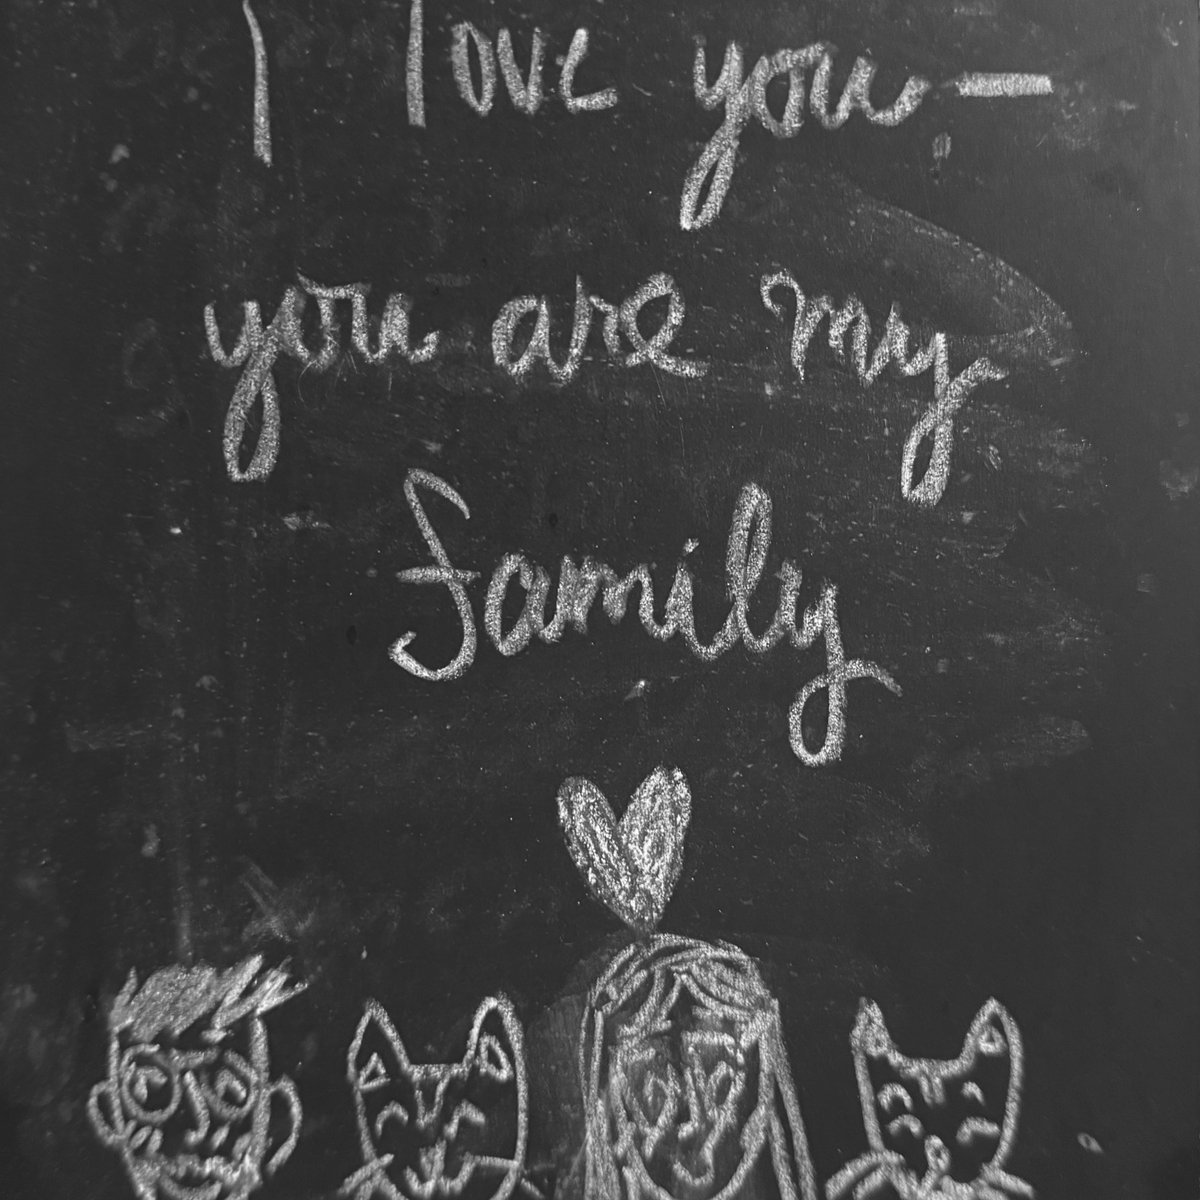 I love you—
you are my
family